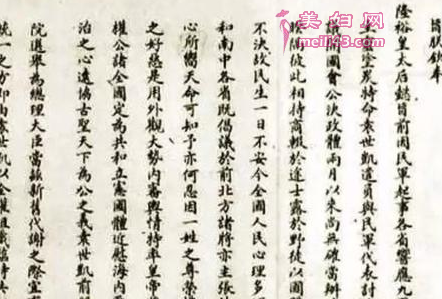 美妇网
旨朕欽奉
隆裕皇太后懿旨前因民軍起事各省響應九
塗炭特命袁世凱遣員與民軍代表討
議開國會公決政體兩月以來尚無確當辦
隔彼此相持商輟於途士露於野徒以國
不決故民生一日不安今全國人民心理多
和南中各省既倡議於前北方諸將亦主張
心所嚮天命可知予亦何忍因一姓之尊榮
之好惡是用外觀大勢內審輿情特率皇帝
權公諸全國定為共和立憲國體近慰海內
治之心遠協古聖天下為公之義袁世凱前
院選舉為總理大臣當茲新舊代謝之際宜
統一之方即由袁世凱以全權組織臨時共